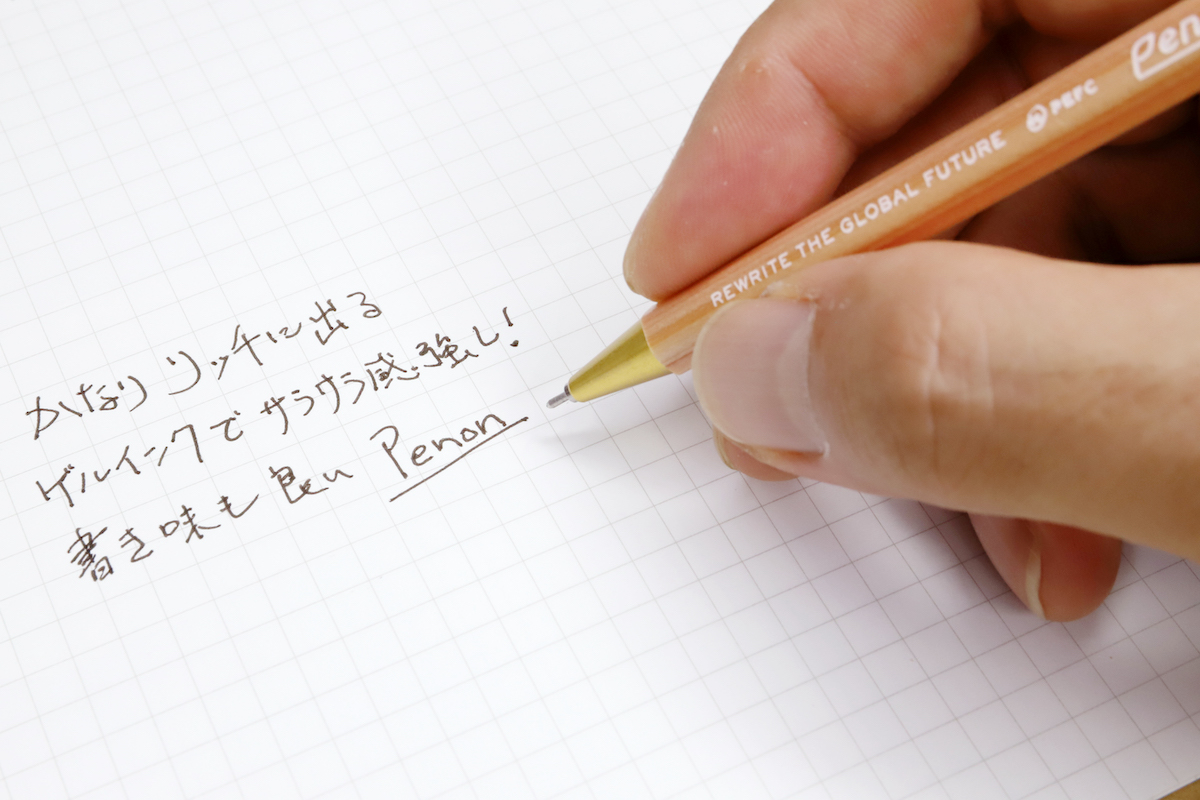 かなりリッチに出る
ゲルインクでサラサラ感強し!
書き味も良い Penon
REWRITE THE GLOBAL FUTURE PEFC Pen